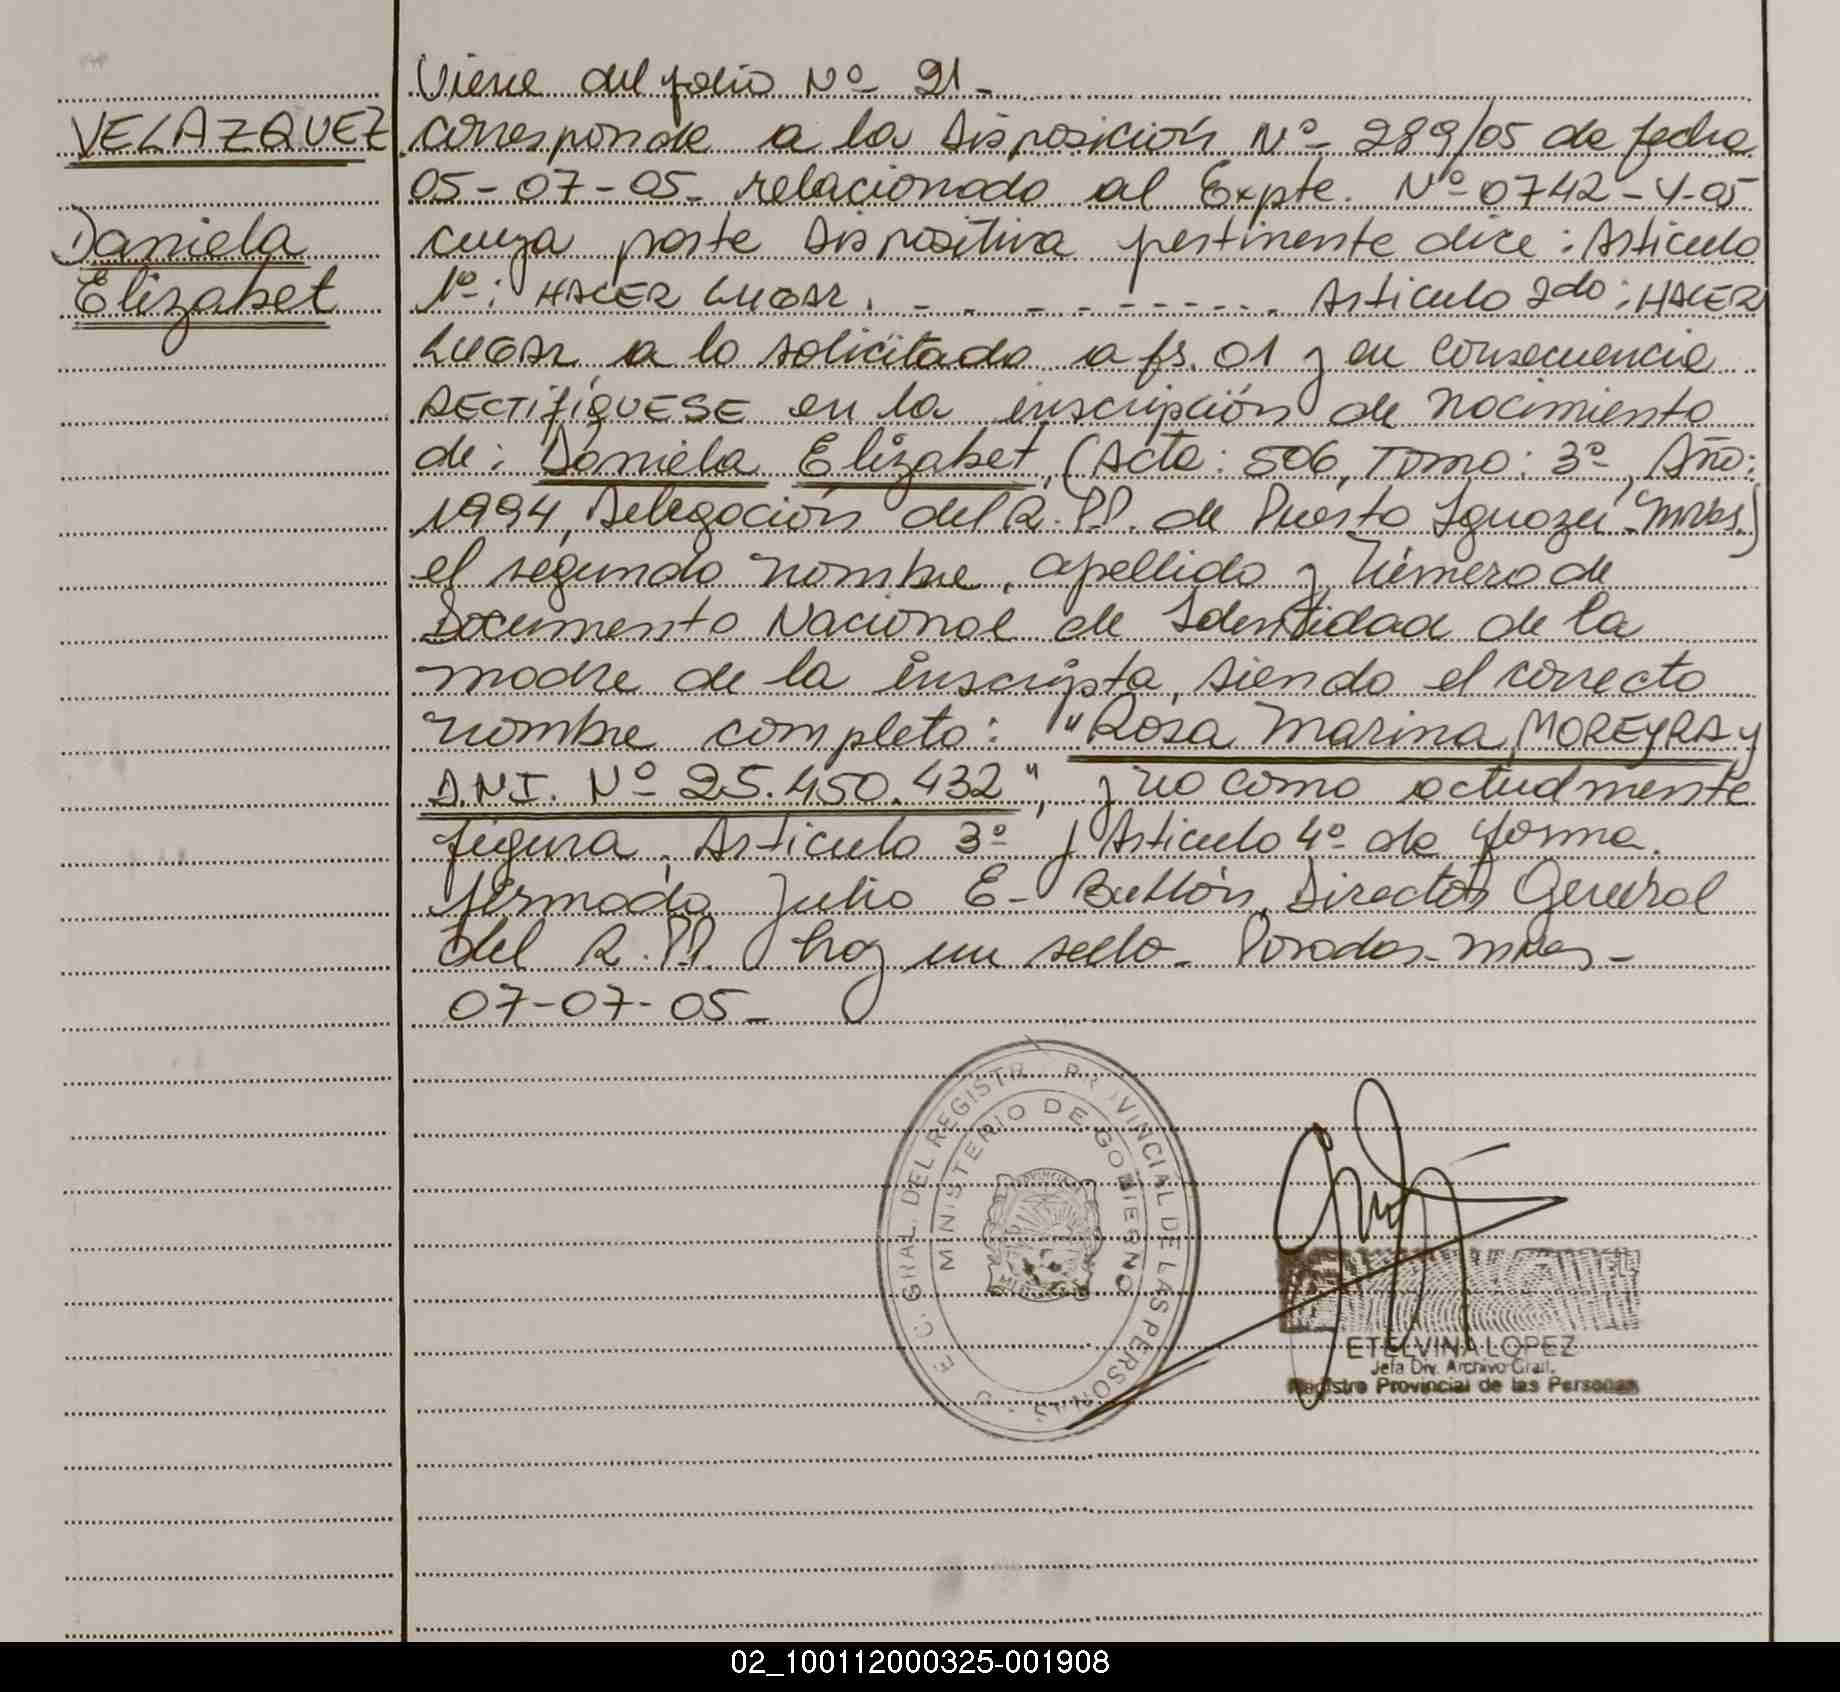 Viene del folio Nº 21-
VELAZQUEZ corresponde a la Disposición Nº 289/05 de fecha
05-07-05- relacionado al Expte. Nº 0742-Y-05
Daniela cuya parte dispositiva pertinente dice: Articulo
Elizabet 1º: HACER LUGAR. - - - - - - - - - - Articulo 2do: HACER
LUGAR a lo solicitado a fs. 01 y en consecuencia
RECTIFÍQUESE en la inscripción de nacimiento
de: Daniela Elizabet, (Acta: 506, Tomo: 3º, Año:
1994, Delegación del R.PP. de Puerto Iguazú-Mnes.)
el segundo nombre, apellido y número de
Documento Nacional de Identidad de la
madre de la inscripta, siendo el correcto
nombre completo: "Rosa Marina MOREYRA y
D.N.I. Nº 25.450.432", y no como actualmente
figura. Articulo 3º y Articulo 4º de forma.
firmado Julio E- Director General
del R.PP. hay un sello- Posadas-Mnes-
07-07-05-
GRAL. DEL REGISTRO PROVINCIAL DE LAS PERSONAS
MINISTERIO DE GOBIERNO
ETELVINA LOPEZ
Jefa Div. Archivo Gral.
Registro Provincial de las Personas
02_100112000325-001908